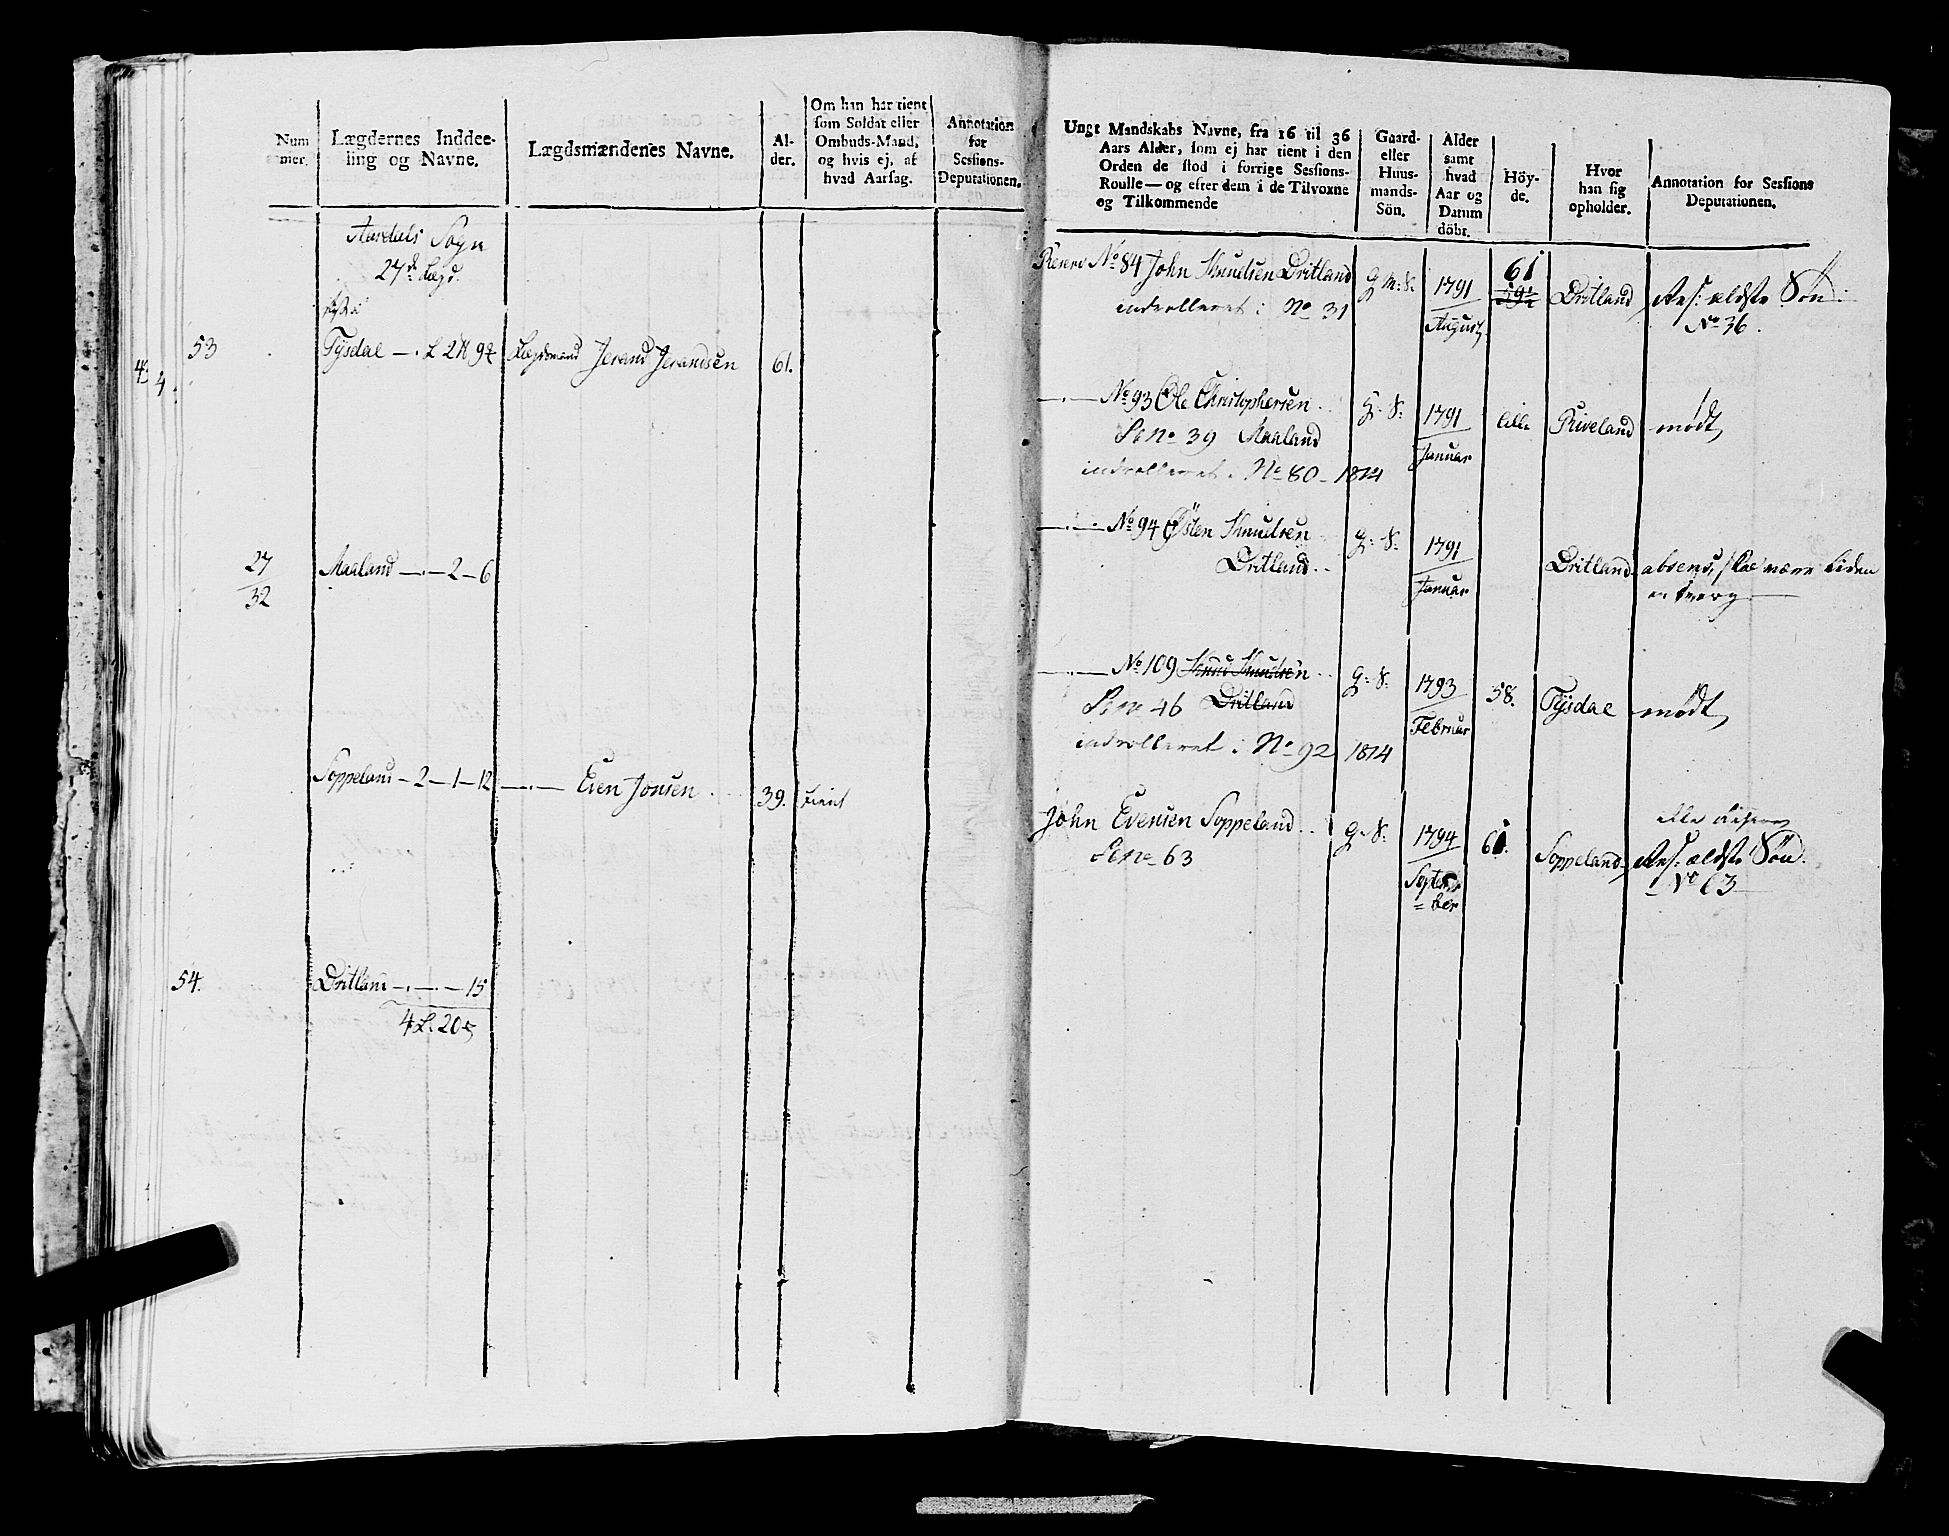 Num
mer.
Lægdernes Inddee-
ling og Navne.
Lægdsmændenes Navne.
Al-
der.
Om han har tient
som Soldat eller
Ombuds-Mand,
og hvis ej, af
hvad Aarsag.
Annotation
for
Sessions-
Deputationen.
Aardals Sogn
27de Lægd.
53
Tÿsdal — . L 2 ₰ 9
Lægdsmand Jerand Jerandsen
61.
4
27
32
Maaland — · — 2 — 6
Soppeland — 2 — 1 — 12
— · — Even Jonsen
39.
tient
54.
Dritland — · — · — 15
4 L. 20
Ungt Mandskabs Navne, fra 16 til 36
Aars Alder, som ej har tient i den
Orden de stod i forrige Sessions-
Roulle — og efter dem i de Tilvoxne
og Tilkommende
Gaard-
eller
Huus-
mands-
Sön.
Alder
samt
hvad
Aar og
Datum
döbt.
Höy-
de.
Hvor
han sig
opholder.
Annotation for Sessions
Deputationen.
Reserv No 84 John Knudsen Dritland
indrolleret i No 31
G M: S.
1791
August
61
59½
Dritland
Res: ældste Søn
No 36.
— · — No 93 Ole Christophersen
No 39 Maaland
indrolleret i No 80 - 1814
G. S:
1791
Januar
lille
Riveland
mødt
— · — No 94 Østen Knudsen
Dritland
G: S:
1791
Januar
Dritland
absens, skal være liden
en Dverg
— · — No 109 Knud Knudsen
46 Dritland
indrolleret i No 92 1814
G: S:
1793
Februar
58.
Tÿsdal
mødt
John Evensen Soppeland
No 63
G. S.
1794
Septem
= ber
61.
Soppeland
Res: ældste Søn
No 63